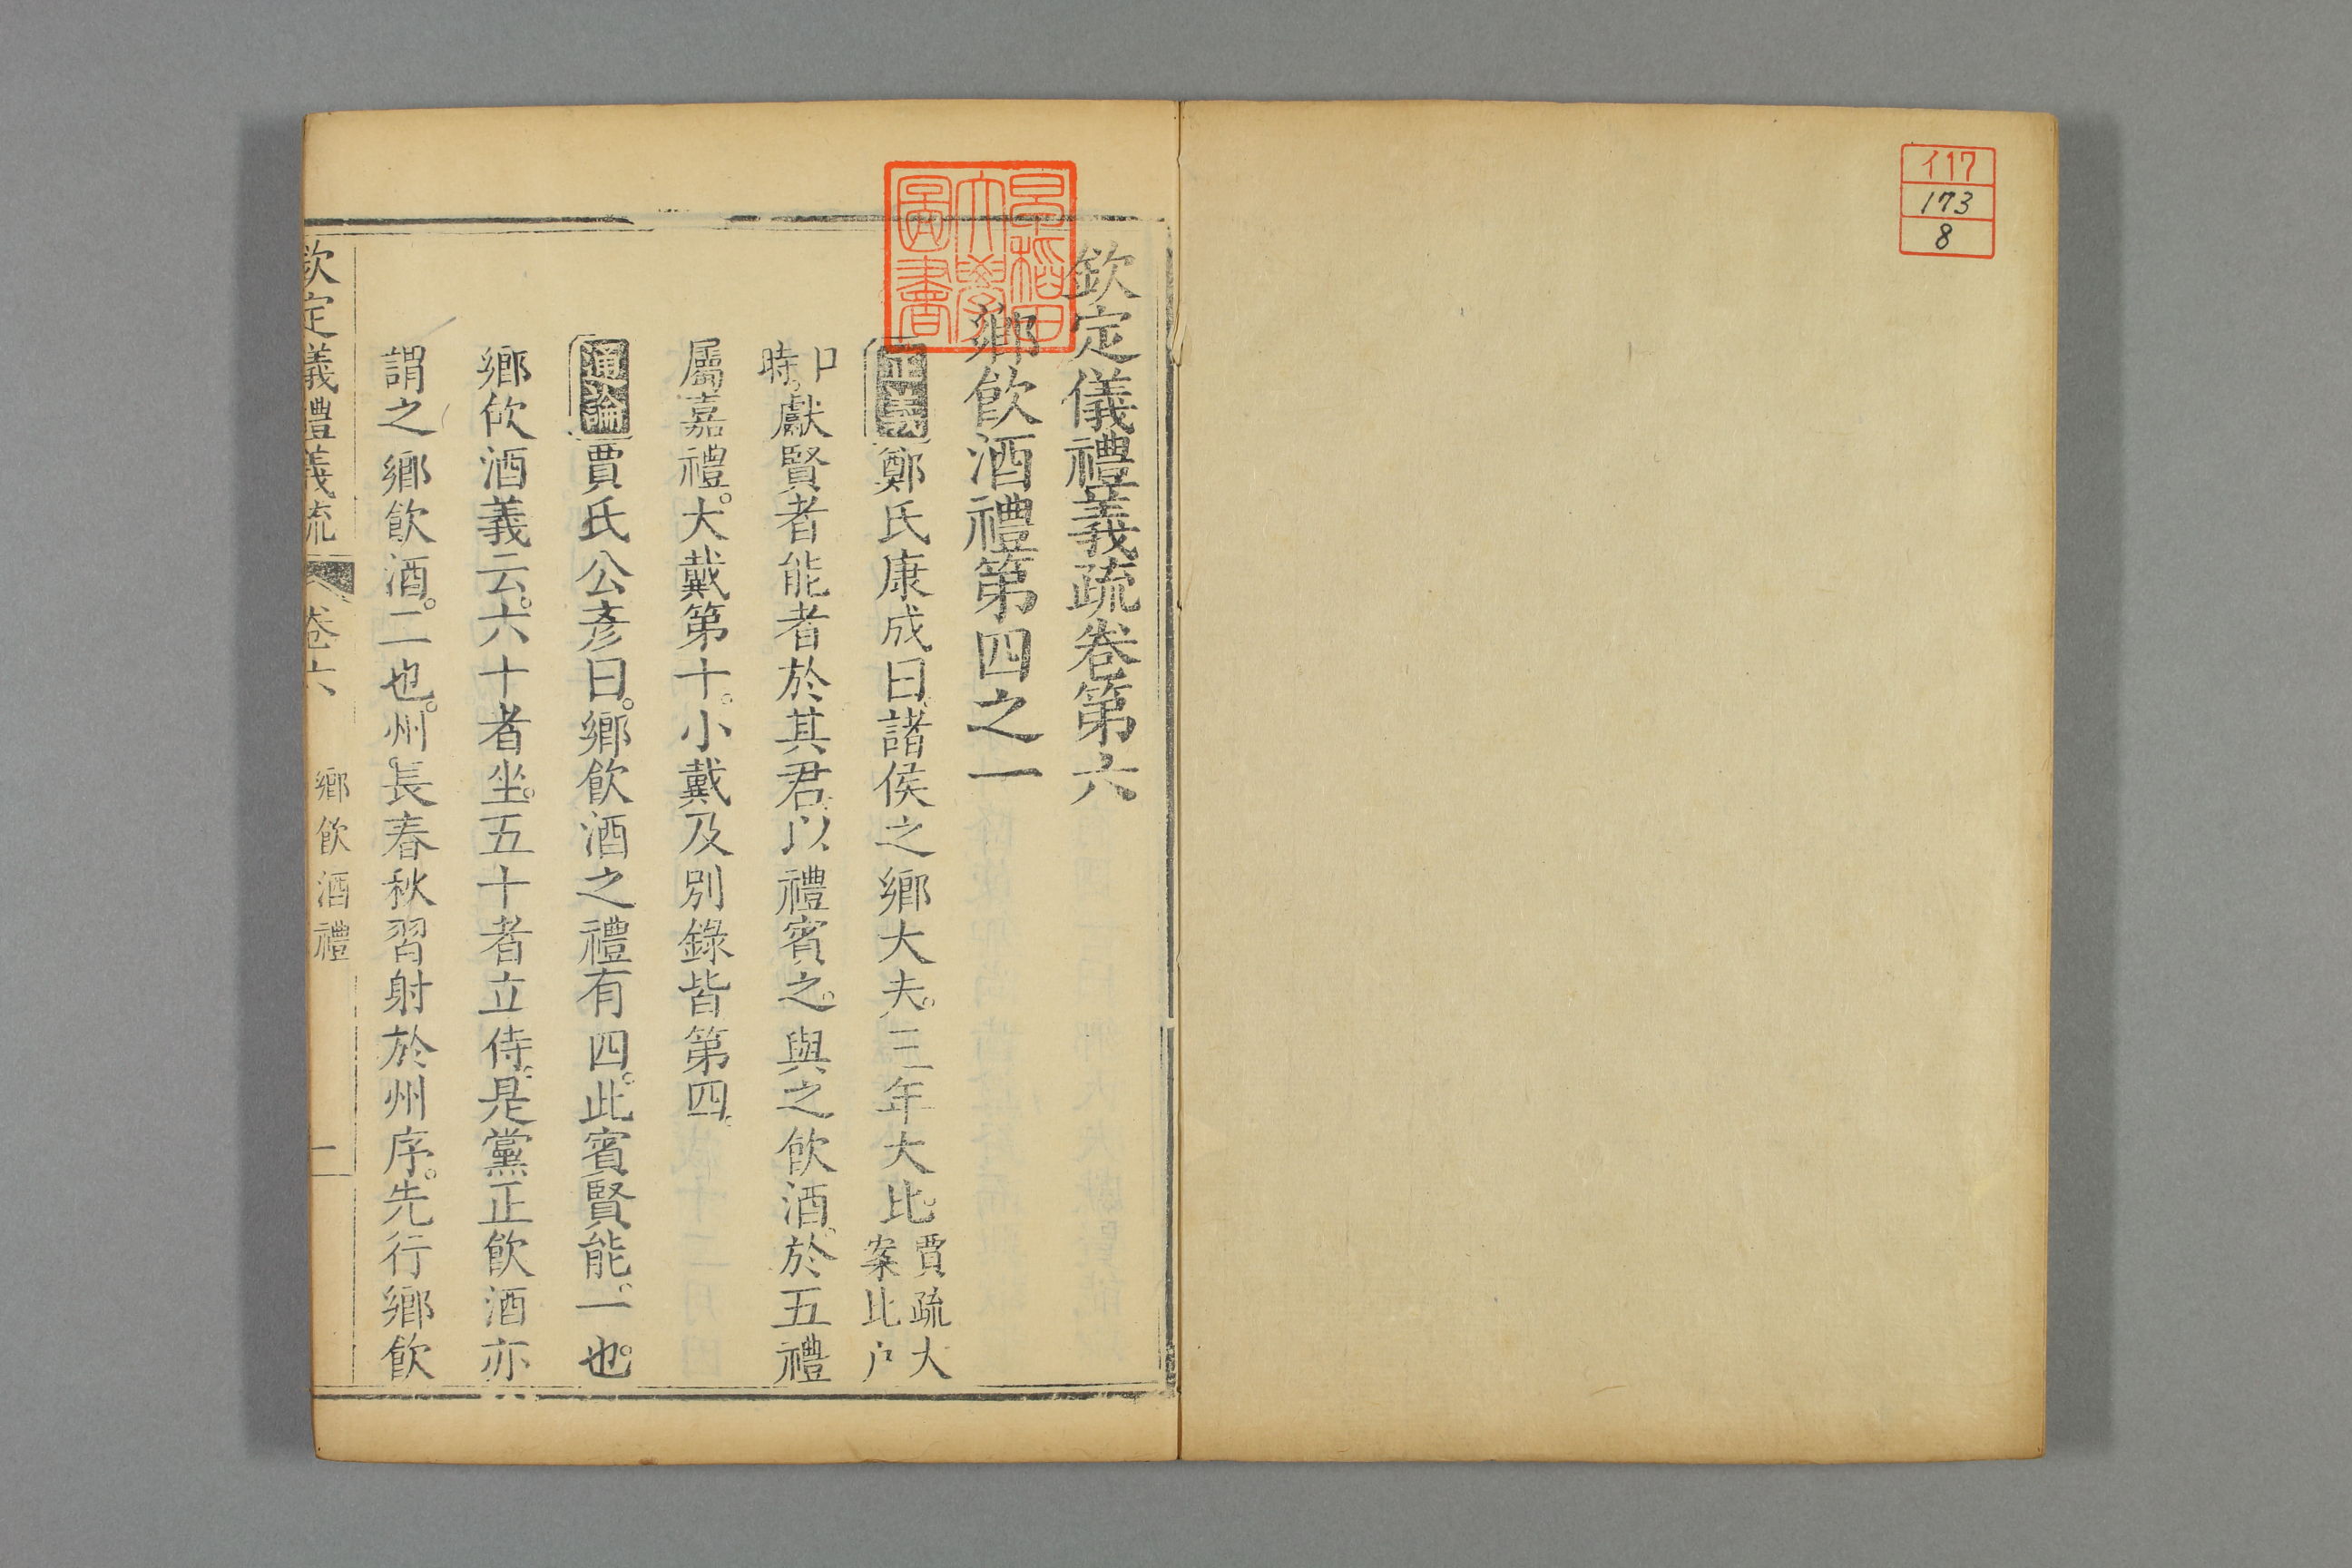 イ17
173
8
早稻田大學圖書
欽定儀禮義疏卷第六
鄉飲酒禮第四之一
正義鄭氏康成曰諸侯之鄉大夫。三年大比。賈疏大案比戶
口時。獻賢者能者於其君。以禮賓之。與之飲酒。於五禮
屬嘉禮。大戴第十。小戴及別錄皆第四。
通論賈氏公彥曰。鄉飲酒之禮有四。此賓賢能。一也。
鄉飲酒義云。六十者坐。五十者立侍。是黨正飲酒亦
謂之鄉飲酒。二也。州長春秋習射於州序。先行鄉飲
欽定儀禮義疏 卷六 鄉飲酒禮